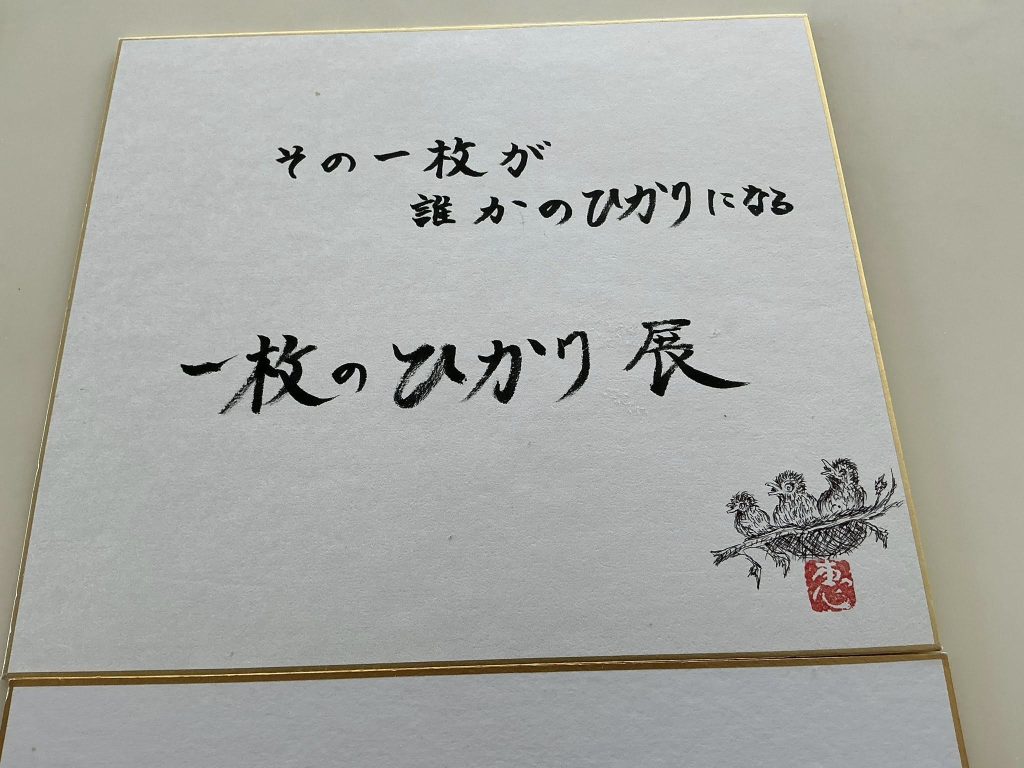 その一枚が
誰かのひかりになる
一枚のひかり展
恵